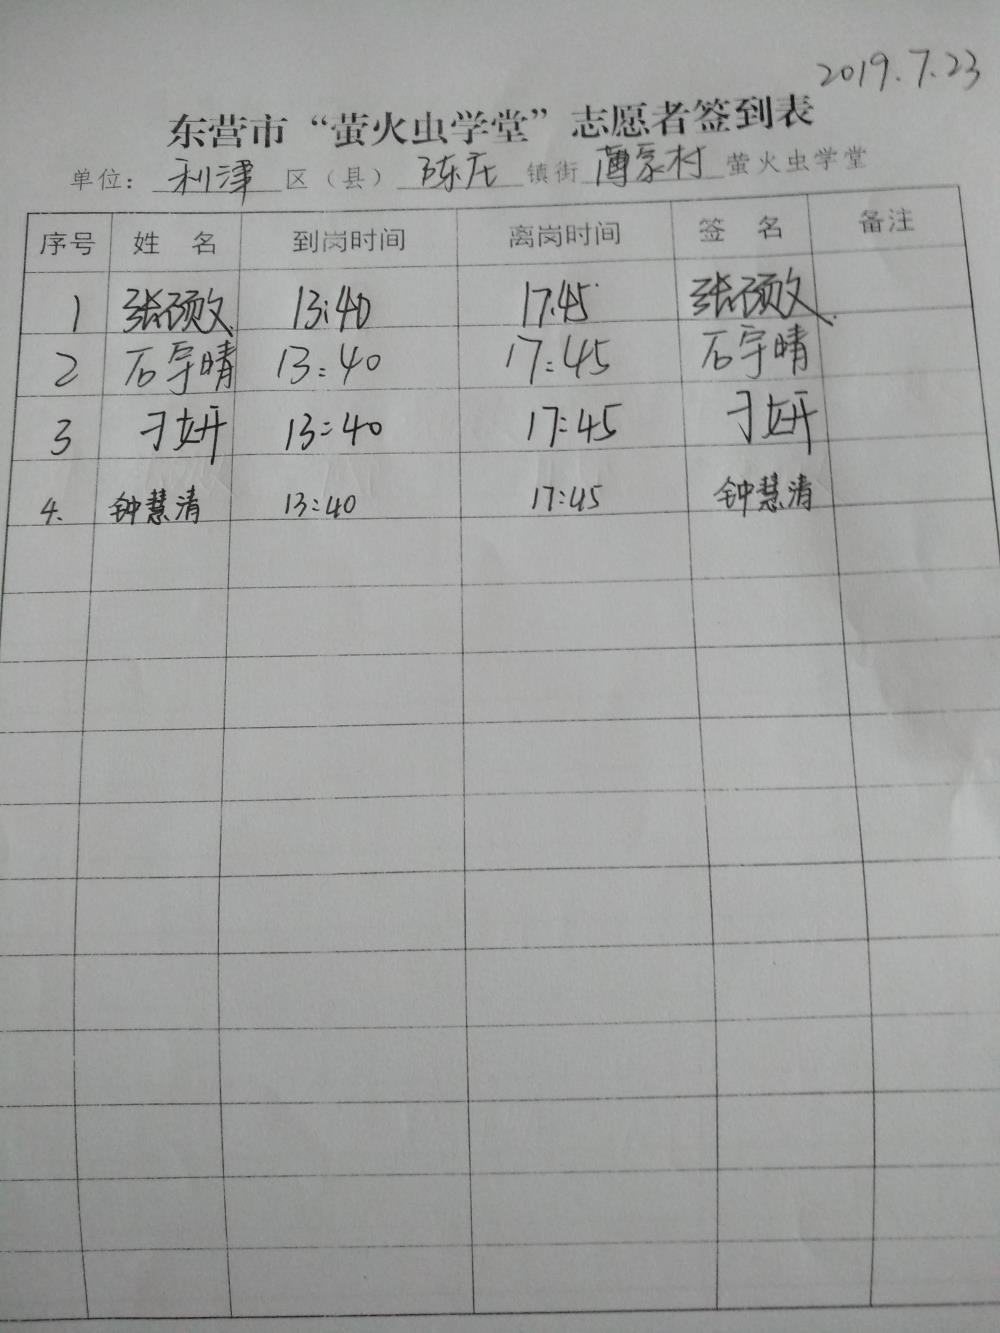 2019.7.23
东营市“萤火虫学堂”志愿者签到表
单位： 利津 区（县） 陈庄 镇街 薄家村 萤火虫学堂
序号 姓 名 到岗时间 离岗时间 签 名 备注
1 张硕文 13:40 17:45 张硕文
2 石宇晴 13:40 17:45 石宇晴
3 刁妍 13:40 17:45 刁妍
4. 钟慧清 13:40 17:45 钟慧清